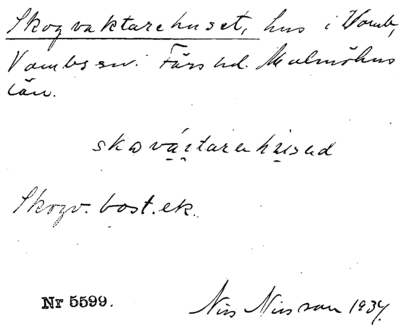 Skogvaktarehuset, hus i Vomb,
Vombs sn. Färs hd. Malmöhus
län.
skɷvästarehused
Skogv. bost. ek.
Nr 5599.
Nils Nilsson 1934.